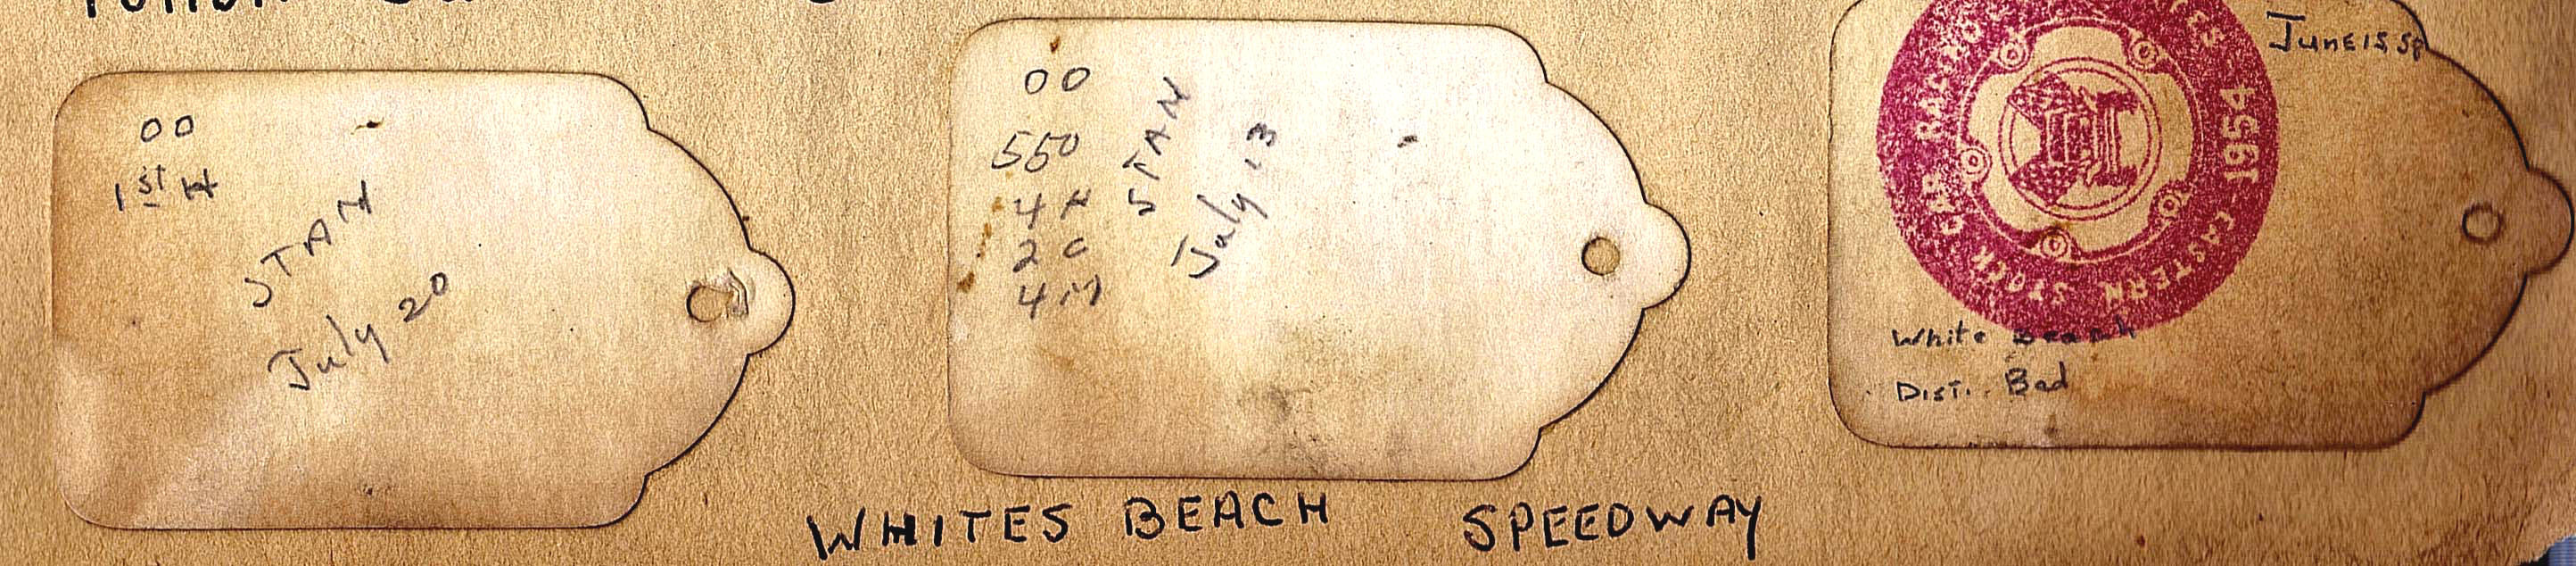 00
1st H
STAN
July 20
00
550
4 H
2 C
4 M
STAN
July 13
EASTERN STOCK CAR RACING
1954
White Beach
Dist. Bad
WHITES BEACH SPEEDWAY